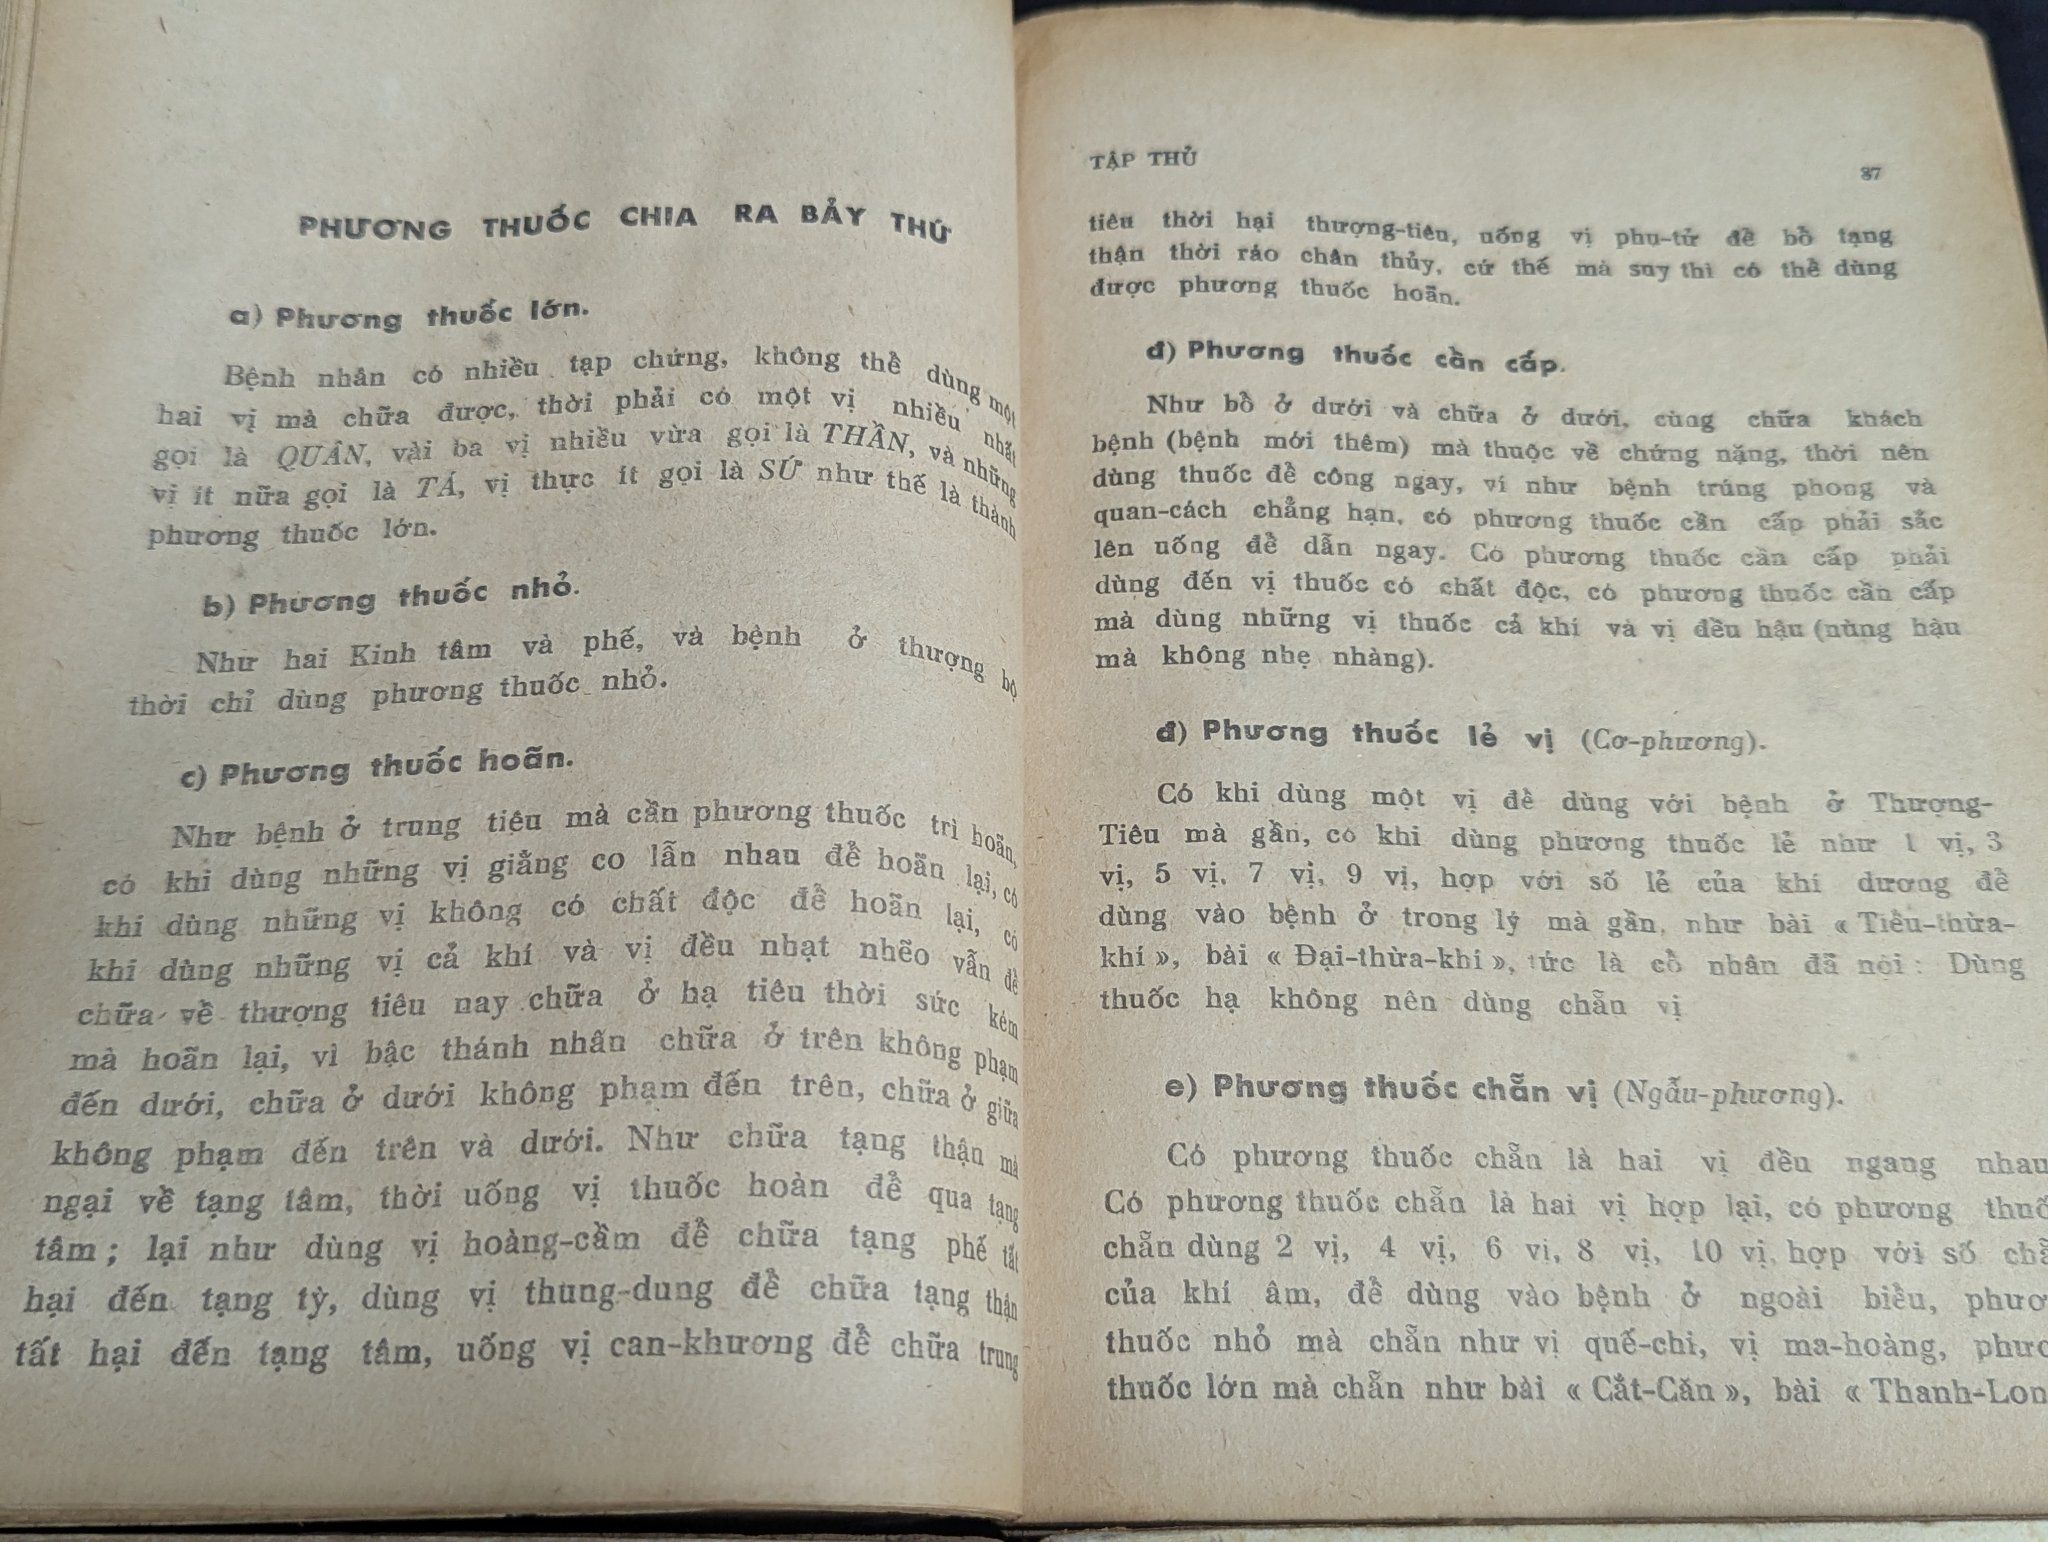 PHƯƠNG THUỐC CHIA RA BẢY THỨ
a) Phương thuốc lớn.
Bệnh nhân có nhiều tạp chứng, không thể dùng một
hai vị mà chữa được, thời phải có một vị nhiều nhất
gọi là QUÂN, vài ba vị nhiều vừa gọi là THẦN, và những
vị ít nữa gọi là TÁ, vị thực ít gọi là SỨ như thế là thành
phương thuốc lớn.
b) Phương thuốc nhỏ.
Như hai Kinh tâm và phế, và bệnh ở thượng bộ
thời chỉ dùng phương thuốc nhỏ.
c) Phương thuốc hoãn.
Như bệnh ở trung tiêu mà cần phương thuốc trì hoãn,
có khi dùng những vị giằng co lẫn nhau để hoãn lại, có
khi dùng những vị không có chất độc để hoãn lại, có
khi dùng những vị cả khí và vị đều nhạt nhẽo vẫn để
chữa về thượng tiêu nay chữa ở hạ tiêu thời sức kém
mà hoãn lại, vì bậc thánh nhân chữa ở trên không phạm
đến dưới, chữa ở dưới không phạm đến trên, chữa ở giữa
không phạm đến trên và dưới. Như chữa tạng thận mà
ngại về tạng tâm, thời uống vị thuốc hoàn để qua tạng
tâm ; lại như dùng vị hoàng-cầm để chữa tạng phế tất
hại đến tạng tỳ, dùng vị thung-dung để chữa tạng thận
tất hại đến tạng tâm, uống vị can-khương để chữa trung
TẬP THỦ
87
tiêu thời hại thượng-tiêu, uống vị phụ-tử để bồ tạng
thận thời ráo chân thủy, cứ thế mà suy thì có thể dùng
được phương thuốc hoãn.
đ) Phương thuốc cần cấp.
Như bồ ở dưới và chữa ở dưới, cùng chữa khách
bệnh (bệnh mới thêm) mà thuộc về chứng nặng, thời nên
dùng thuốc để công ngay, ví như bệnh trúng phong và
quan-cách chẳng hạn, có phương thuốc cần cấp phải sắc
lên uống để dẫn ngay. Có phương thuốc cần cấp phải
dùng đến vị thuốc có chất độc, có phương thuốc cần cấp
mà dùng những vị thuốc cả khí và vị đều hậu (nùng hậu
mà không nhẹ nhàng).
đ) Phương thuốc lẻ vị (Cơ-phương).
Có khi dùng một vị để dùng với bệnh ở Thượng-
Tiêu mà gần, có khi dùng phương thuốc lẻ như 1 vị, 3
vị, 5 vị, 7 vị, 9 vị, hợp với số lẻ của khí dương để
dùng vào bệnh ở trong lý mà gần, như bài « Tiểu-thừa-
khí », bài « Đại-thừa-khí », tức là cổ nhân đã nói : Dùng
thuốc hạ không nên dùng chẵn vị
e) Phương thuốc chẵn vị (Ngẫu-phương).
Có phương thuốc chẵn là hai vị đều ngang nhau
Có phương thuốc chẵn là hai vị hợp lại, có phương thuố
chẵn dùng 2 vị, 4 vị, 6 vị, 8 vị, 10 vị, hợp với số chẵ
của khí âm, để dùng vào bệnh ở ngoài biểu, phươ
thuốc nhỏ mà chẵn như vị quế-chi, vị ma-hoàng, phươ
thuốc lớn mà chẵn như bài « Cắt-Căn », bài « Thanh-Lon